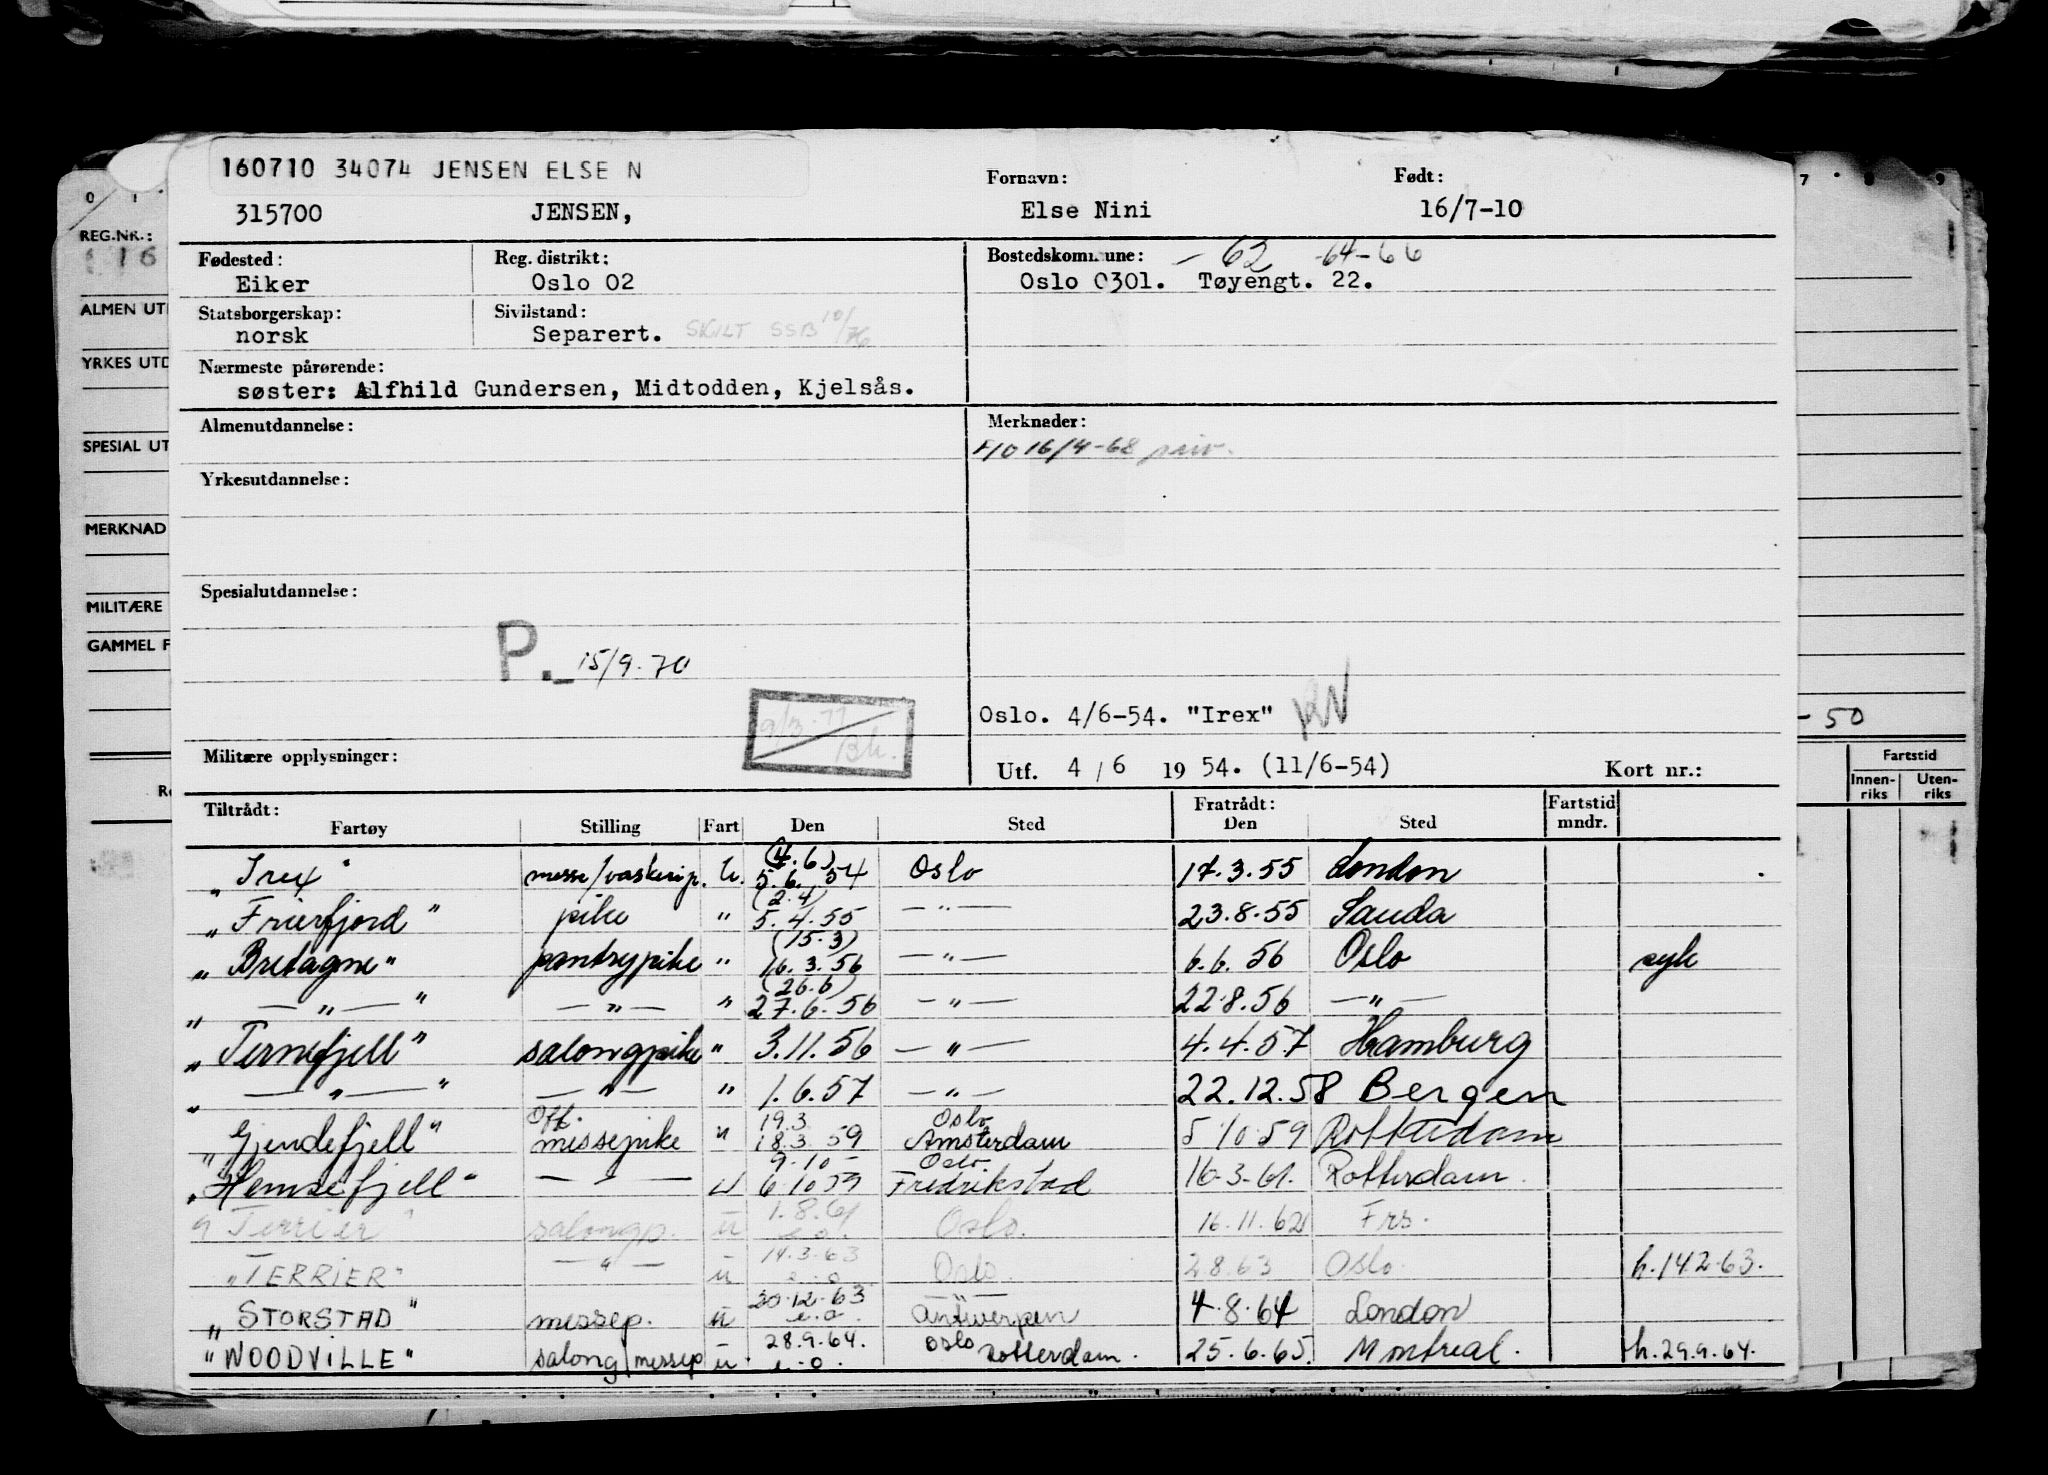 160710 34074 JENSEN ELSE N
315700 JENSEN,
Fornavn: Født:
Else Nini 16/7-10
Fødested: Reg. distrikt: Bostedskommune: - 62 64-66
Eiker Oslo 02 Oslo 0301. Tøyengt. 22.
Statsborgerskap: Sivilstand:
norsk Separert. SKILT SSB 10/76
Nærmeste pårørende:
søster: Alfhild Gundersen, Midtodden, Kjelsås.
Almenutdannelse: Merknader:
16/4-68
Yrkesutdannelse:
Spesialutdannelse:
P. 15/9.70
9/3-77
Bh.
Oslo. 4/6-54. "Irex"
Militære opplysninger: Utf. 4/6 1954. (11/6-54) Kort nr.:
Tiltrådt: Fratrådt: Fartstid
Fartøy Stilling Fart Den Sted Den Sted mndr.
"Irex" messe/vaskerip. U. (4.6) 5.6.54 Oslo 17.3.55 London
"Frierfjord" pike " (2.4) 5.4.55 — " — 23.8.55 Sauda
"Bretagne" pantrypike " (15.3) 16.3.56 — " — 6.6.56 Oslo syk
" — " — " — " — " (26.6) 27.6.56 — " — 22.8.56 — " —
"Ternefjell" salongpike " 3.11.56 — " — 4.4.57 Hamburg
" — " — " — " — " 1.6.57 — " — 22.12.58 Bergen
"Gjendefjell" Off. messepike " 19.3 18.3.59 Oslo Amsterdam 5 10 59 Rotterdam
"Hemsefjell" — " — U 9.10 - 6 10 59 Oslo. Fredrikstad 16-3-61. Rotterdam.
"Terrier" salongp. u 1.8.61 e.o. Oslo. 16.11.62 Frs.
"TERRIER" — " — u 14.3.63 e.o. Oslo. 2 8 63 Oslo. h.14.2.63.
"STORSTAD" messep. u 30.12.63 e.o. — " — Antwerpen 4.8.64 London
"WOODVILLE" salong/messep u 28.9.64. e.o. Oslo Rotterdam. 25.6.65. Montreal. h.29.9.64.
REG.NR.:
16
ALMEN UT
YRKES UTD
SPESIAL UT
MERKNAD
MILITÆRE
GAMMEL F
- 50
Fartstid
Innen-riks Uten-riks